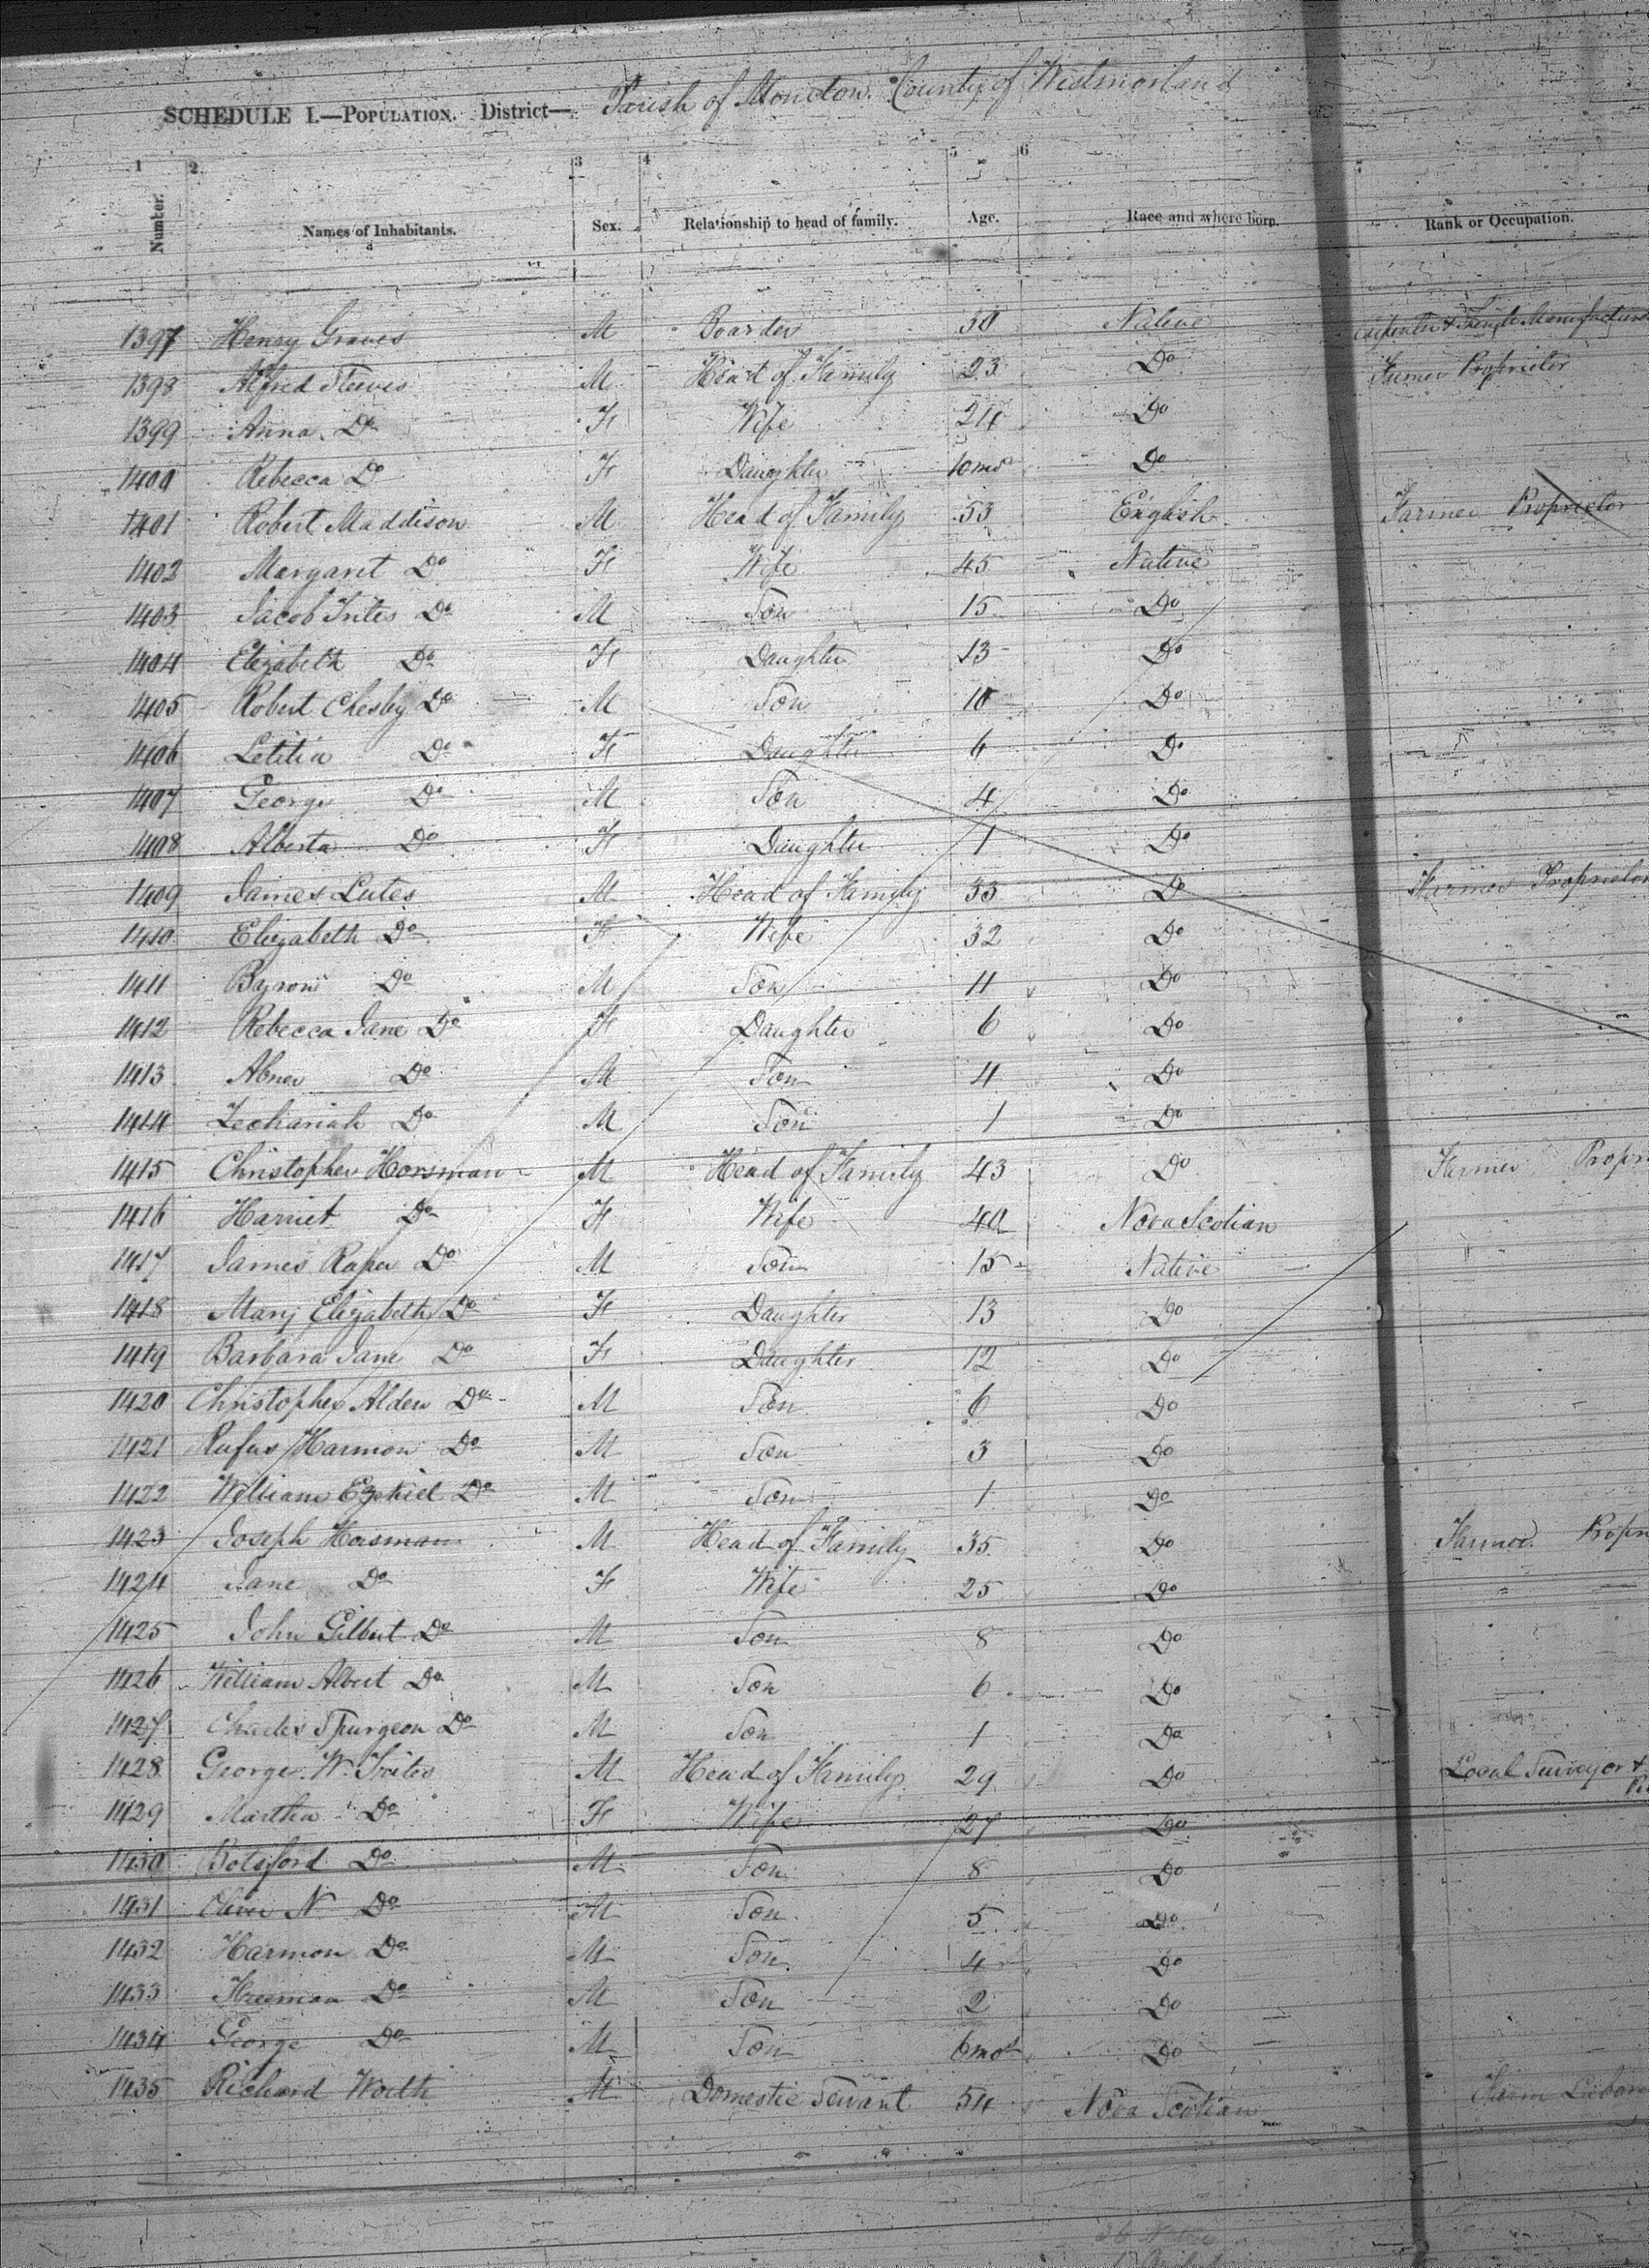 SCHEDULE I.—POPULATION. District— Parish of Moncton. County of Westmorland
1 2 3 4 5 6
Number. Names of Inhabitants. Sex. Relationship to head of family. Age. Race and where born. Rank or Occupation.
1397 Henry Graves M Boarder 30 Native Carpenter & Shingle Manufacturer
1398 Alfred Steeves M Head of Family 23 Do Farmer Proprietor
1399 Anna Do F Wife 24 Do
1400 Rebecca Do F Daughter 10mos Do
1401 Robert Maddison M Head of Family 53 English Farmer Proprietor
1402 Margaret Do F Wife 45 Native
1403 Jacob Trites Do M Son 15 Do
1404 Elizabeth Do F Daughter 13 Do
1405 Robert Chesley Do M Son 10 Do
1406 Letitia Do F Daughter 6 Do
1407 George Do M Son 4 Do
1408 Alberta Do F Daughter 1 Do
1409 James Lutes M Head of Family 33 Do Farmer Proprietor
1410 Elizabeth Do F Wife 32 Do
1411 Byron Do M Son 11 Do
1412 Rebecca Jane Do F Daughter 6 Do
1413 Abner Do M Son 4 Do
1414 Zechariah Do M Son 1 Do
1415 Christopher Horsman M Head of Family 43 Do Farmer Propri
1416 Harriet Do F Wife 40 Nova Scotian
1417 James Raper Do M Son 15 Native
1418 Mary Elizabeth Do F Daughter 13 Do
1419 Barbara Jane Do F Daughter 12 Do
1420 Christopher Alden Do M Son 6 Do
1421 Rufus Harmon Do M Son 3 Do
1422 William Ezekiel Do M Son 1 Do
1423 Joseph Horsman M Head of Family 35 Do Farmer Propri
1424 Jane Do F Wife 25 Do
1425 John Gilbert Do M Son 8 Do
1426 William Albert Do M Son 6 Do
1427 Charles Spurgeon Do M Son 1 Do
1428 George W. Trites M Head of Family 29 Do Local Surveyor &
1429 Martha Do F Wife 27 Do
1430 Botsford Do M Son 8 Do
1431 Oliver N Do M Son 5 Do
1432 Harmon Do M Son 4 Do
1433 Freeman Do M Son 2 Do
1434 George Do M Son 6mos Do
1435 Richard Worth M Domestic Servant 54 Nova Scotian Farm Labor